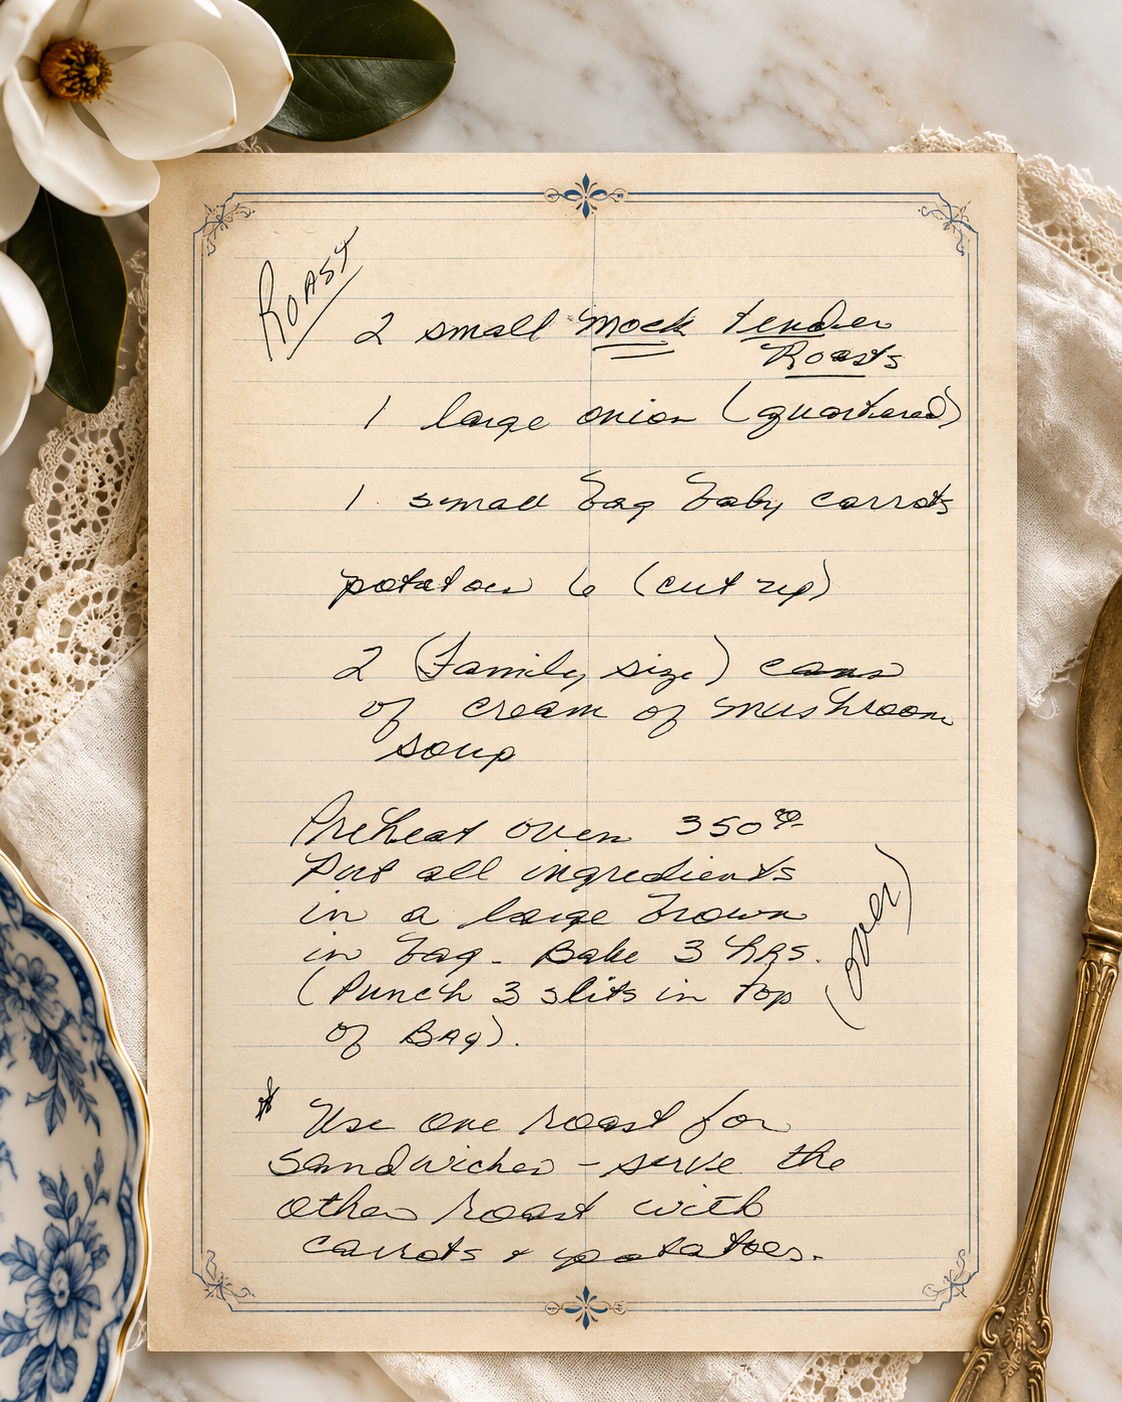 Roast
2 small mock tender
Roasts
1 large onion (quartered)
1 small bag baby carrots
potatoes 6 (cut up)
2 (Family size) cans
of cream of mushroom
soup
Preheat oven 350°
Put all ingredients
in a large brown
in bag. Bake 3 hrs.
(Punch 3 slits in top
of Bag).
(over)
* Use one roast for
sandwiches - serve the
other roast with
carrots & potatoes.